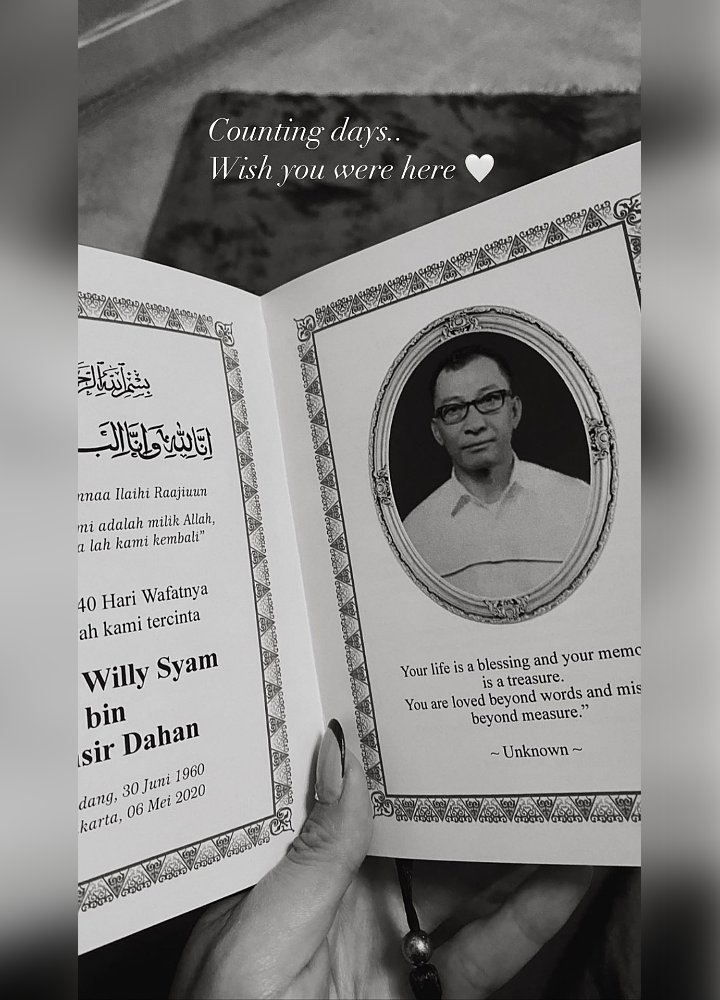 Counting days..
Wish you were here 🤍
إنا لله وإنا
nnaa Ilaihi Raajiuun
mi adalah milik Allah,
a lah kami kembali”
40 Hari Wafatnya
ah kami tercinta
Willy Syam
bin
sir Dahan
dang, 30 Juni 1960
karta, 06 Mei 2020
Your life is a blessing and your memo
is a treasure.
You are loved beyond words and mis
beyond measure.”
~ Unknown ~